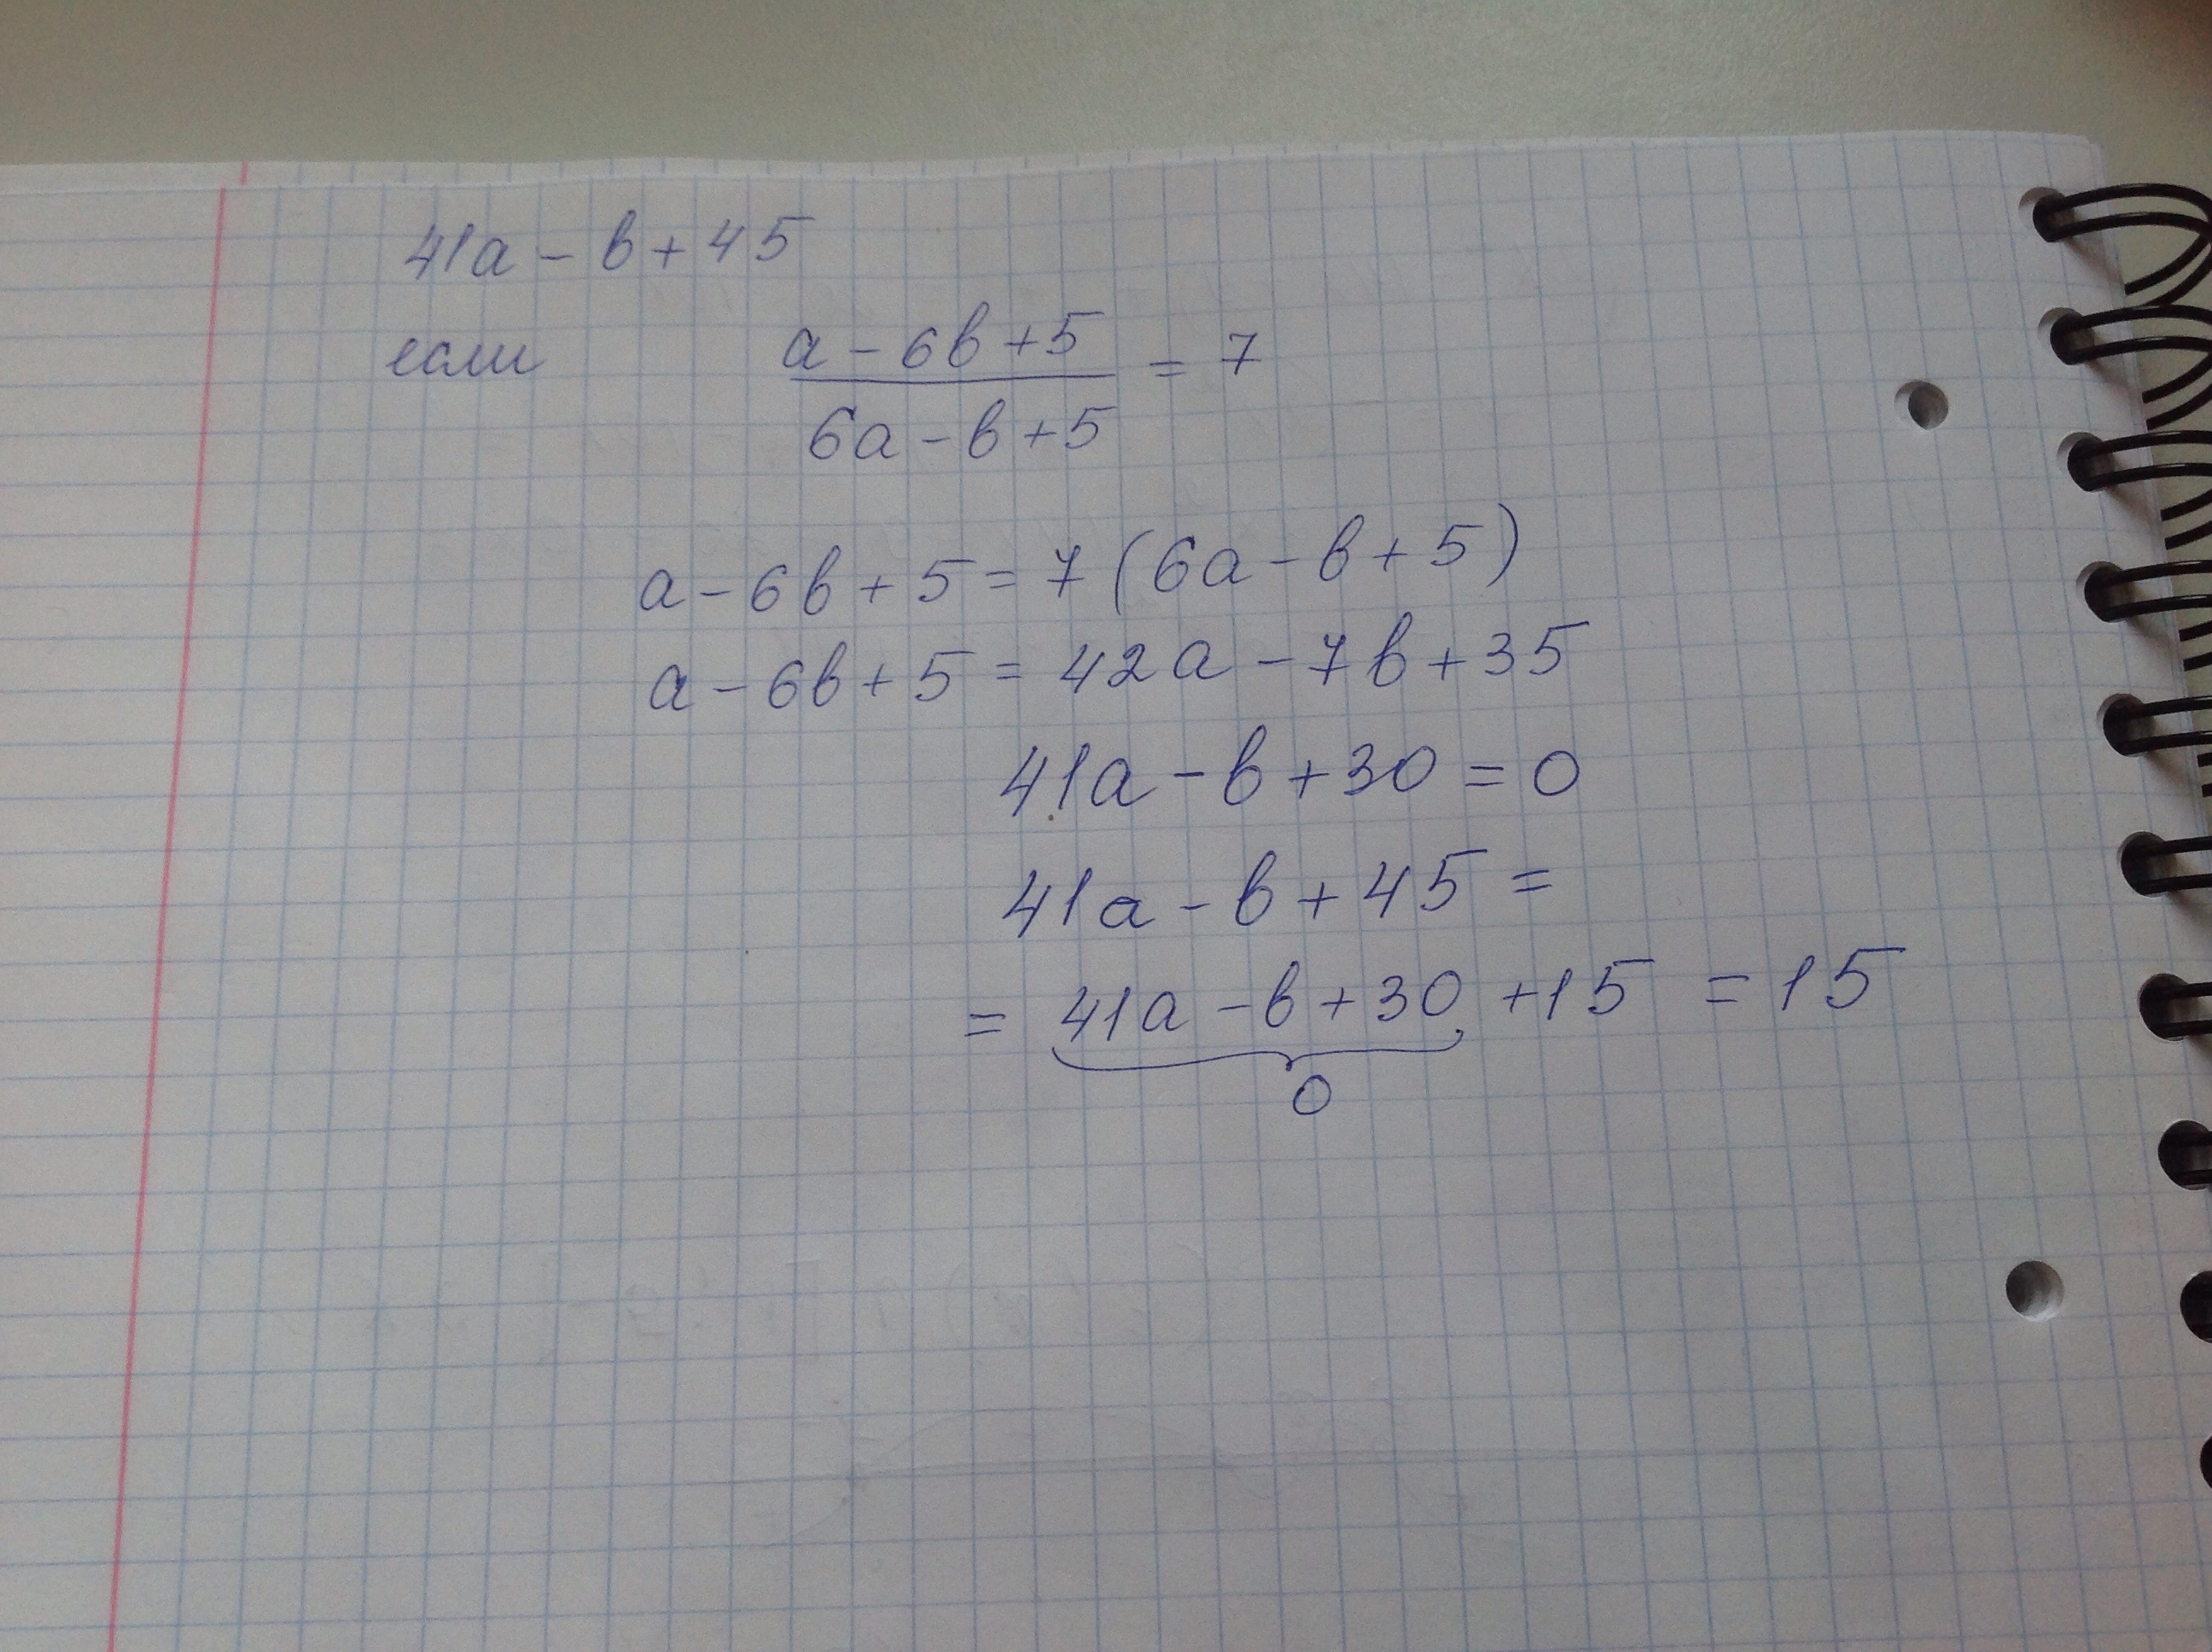 41a - b + 45
если a - 6b + 5 / 6a - b + 5 = 7
a - 6b + 5 = 7 (6a - b + 5)
a - 6b + 5 = 42a - 7b + 35
41a - b + 30 = 0
41a - b + 45 =
= 41a - b + 30 + 15 = 15
0